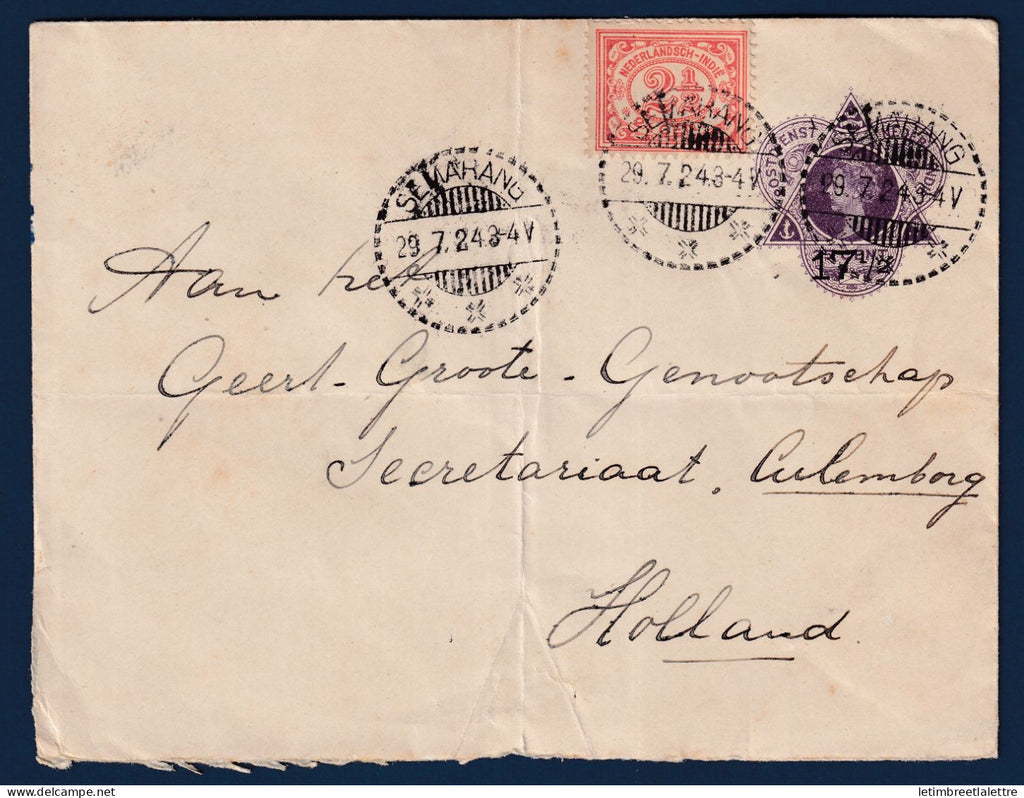 NEDERLANDSCH-INDIË
2½
SEMARANG
29.7.24.3-4V
SEMARANG
29.7.24.3-4V
SEMARANG
29.7.24.3-4V
17½
Aan het
Geert-Groote-Genootschap
Secretariaat, Culemborg
Holland.
delcampe.net
letimbreetlalettre